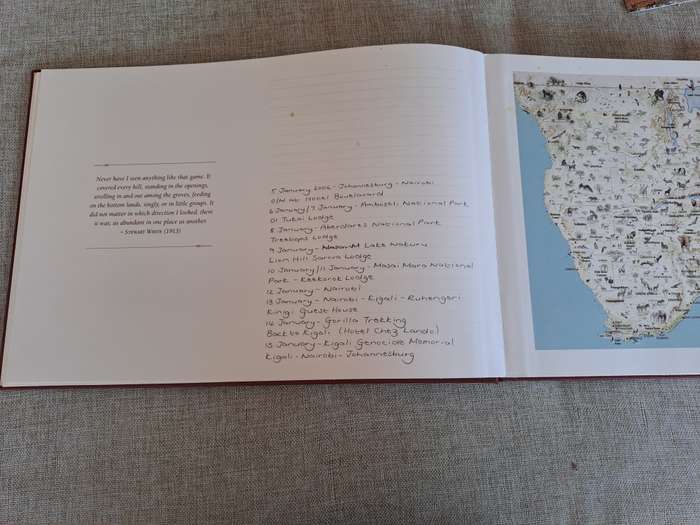 Never have I seen anything like that game. It
covered every hill, standing in the openings,
strolling in and out among the groves, feeding
on the bottom lands, singly, or in little groups. It
did not matter in which direction I looked, there
it was; as abundant in one place as another.
~ Stewart White (1913)
5 January 2006 - Johannesburg - Nairobi
O/N At Hotel Boulevard
6 January/7 January - Amboseli National Park
Ol Tukai Lodge
8 January - Aberdares National Park
Treetops Lodge
9 January - Lake Nakuru
Lion Hill Sarova Lodge
10 January/11 January - Masai Mara National
Park - Keekorok Lodge
12 January - Nairobi
13 January - Nairobi - Kigali - Ruhengeri
Kinigi Guest House
14 January - Gorilla Trekking
Back to Kigali (Hotel Chez Lando)
15 January - Kigali Genocide Memorial
Kigali - Nairobi - Johannesburg